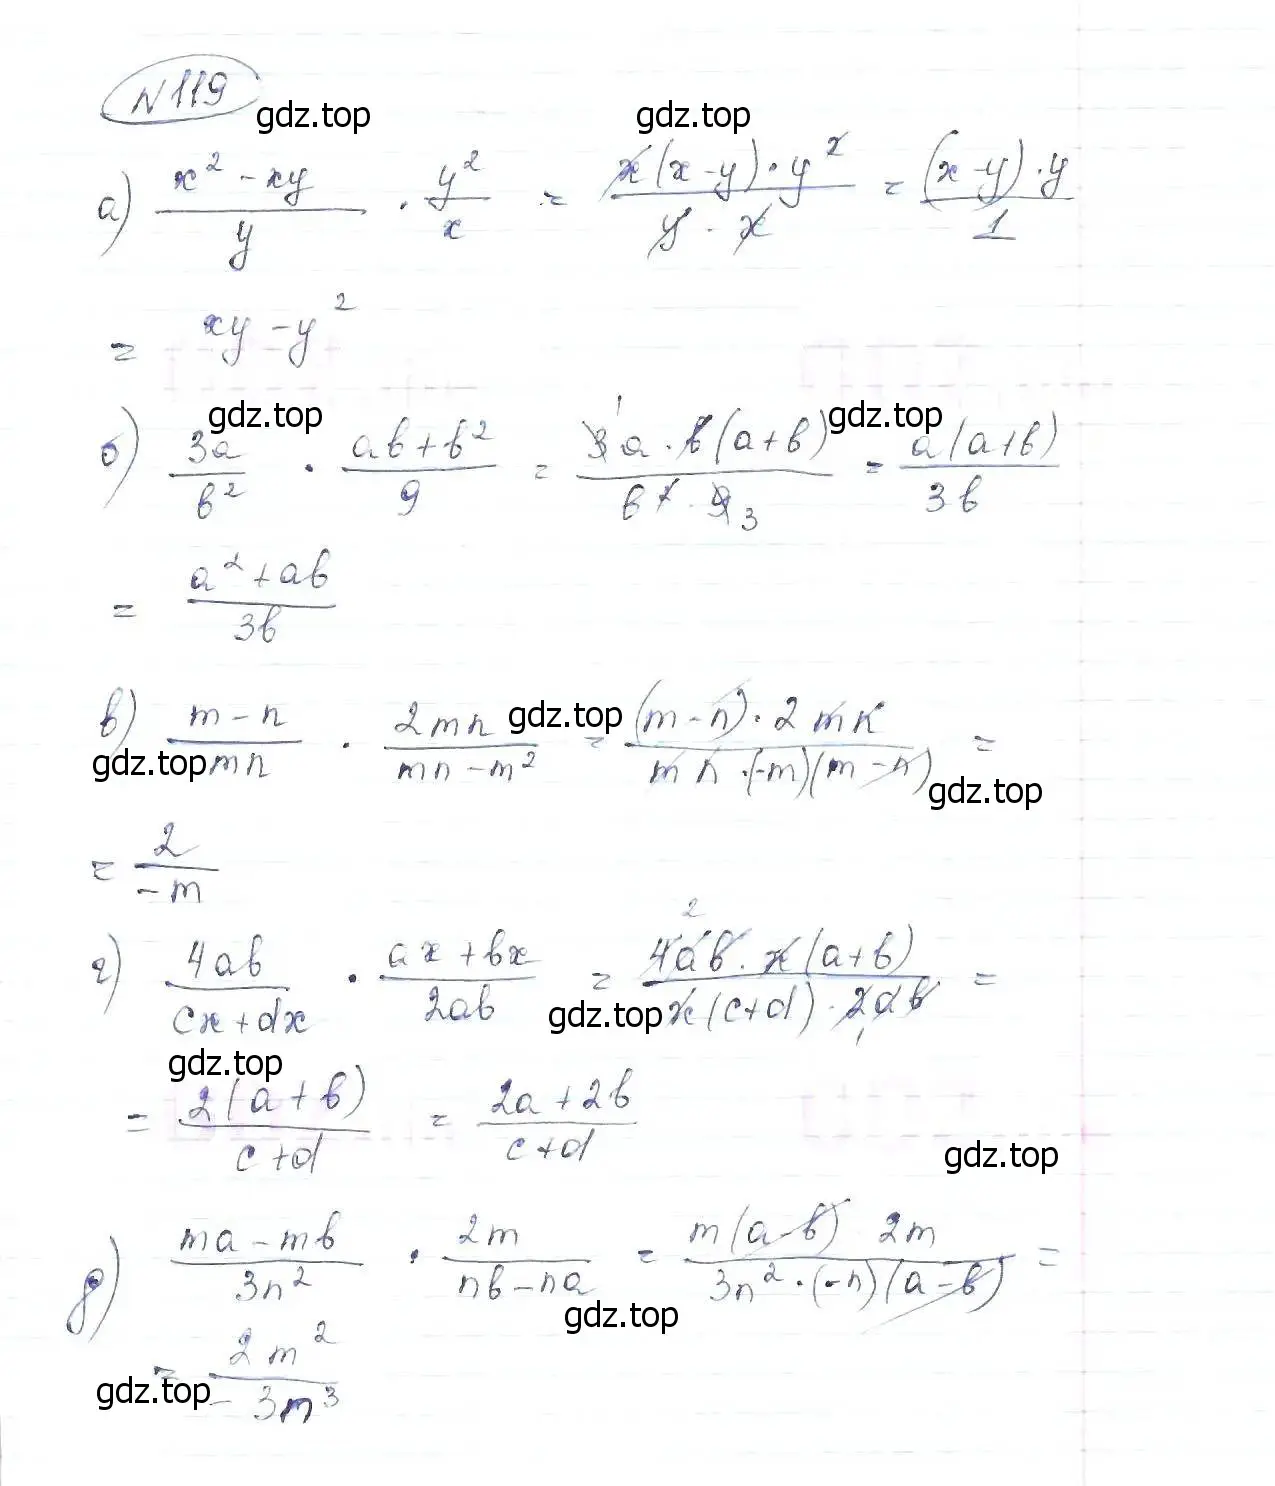 N 119
gdz.top gdz.top
а) (x² - xy)/y · y²/x = x(x-y)·y²/(y·x) = (x-y)·y/1
= xy - y²
gdz.top gdz.top
б) 3a/b² · (ab+b²)/9 = 3a·b(a+b)/(b²·9) = a(a+b)/3b
1 3
= (a²+ab)/3b
в) (m-n)/mn · 2mn/(mn-m²) = (m-n)·2mn/(mn·(-m)(m-n)) =
gdz.top gdz.top gdz.top
= 2/-m
г) 4ab/(cx+dx) · (ax+bx)/2ab = 4ab·x(a+b)/(x(c+d)·2ab) =
2 1
gdz.top gdz.top
= 2(a+b)/(c+d) = (2a+2b)/(c+d)
gdz.top
д) (ma-mb)/3n² · 2m/(nb-na) = m(a-b) 2m/(3n²·(-n)(a-b)) =
gdz.top
= 2m²/-3m³
gdz.top